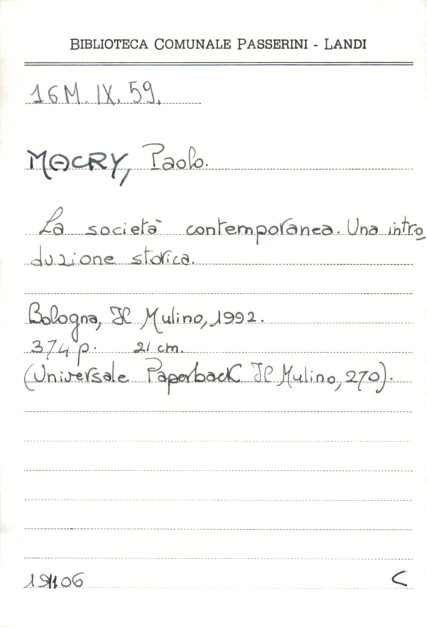 BIBLIOTECA COMUNALE PASSERINI - LANDI
16M. IX. 59.
MACRY, Paolo.
La società contemporanea. Una intro
duzione storica.
Bologna, Il Mulino, 1992.
374 p. 21 cm.
(Universale Paperback Il Mulino, 270).
C